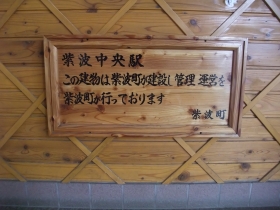 紫波中央駅
この建物は紫波町が建設し管理運営を
紫波町が行っております
紫波町